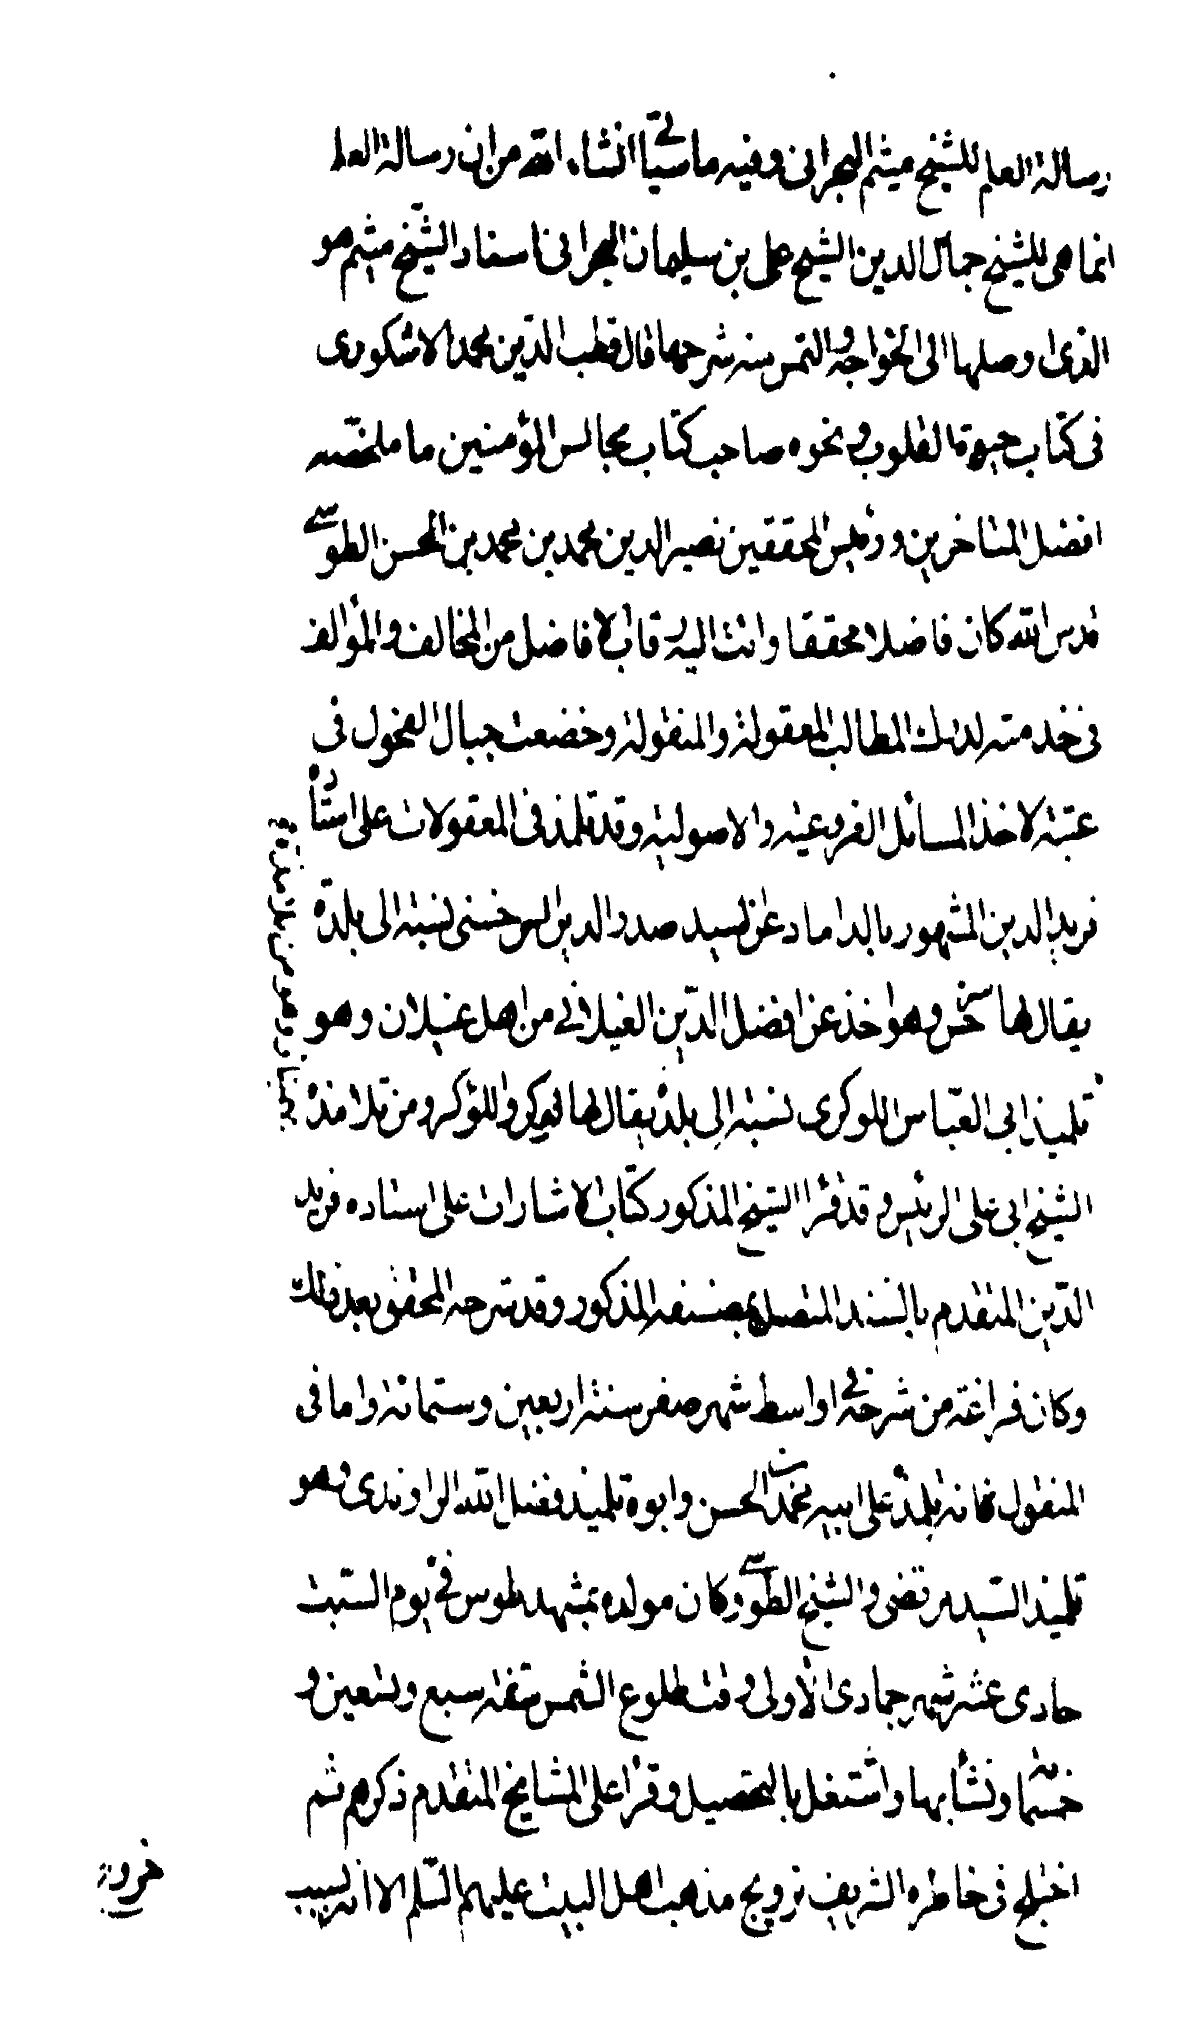 رسالة العلم للشيخ ميثم البحراني وفيه ما سيأتي انشاء الله من ان رسالة العلم
انما هي للشيخ جمال الدين الشيخ علي بن سليمان البحراني استاد الشيخ ميثم هو
الذى اوصلها الى الخواجه والتمس منه شرحها قال قطب الدين محمد الاشكورى
في كتاب حيوة القلوب و نحوه صاحب كتاب مجالس المؤمنين ما ملخصه
افضل المتاخرين ورئيس المحققين نصير الدين محمد بن محمد بن الحسن الطوسي
قدس الله كان فاضلا محققا وانت اليه رقاب الافاضل من المخالف والمؤالف
في خدمته لدرك المطالب المعقولة والمنقولة وخضعت جبال الفحول في
عتبته لاخذ المسائل الفروعية والاصولية وقد تلمذ في المعقولات على استاده
فريد الدين المشهور بالداماد عن السيد صدر الدين السرخسى نسبته الى بلدة
يقال لها سرخس وهو اخذ عن افضل الدين الغيلاني من اهل غيلان وهو
تلميذ ابي العباس اللوكرى نسبته الى بلدة يقال لها لوكر واللوكر ومن تلامذة
بهمنيار وهو من تلامذة
الشيخ ابي على الرئيس و قد قرأ الشيخ المذكور كتاب الاشارات على استاده فريد
الدين المتقدم بالسند المتصل بمصنفه المذكور وقد شرحه المحقق بعد ذلك
وكان فراغه من شرحه في اواسط شهر صفر سنة اربعين وستمائة واما في
المنقول فانه تلمذ على ابيه محمد بن الحسن وابوه تلميذ فضل الله الراوندى وهو
تلميذ السيد مرتضى والشيخ الطوسي وكان مولده بمشهد طوس في يوم السبت
حادى عشر شهر جمادى الاولى وقت طلوع الشمس سنة سبع وتسعين و
خمسمائة ونشأ بها واشتغل بالتحصيل وقرأ على المشايخ المتقدم ذكرهم ثم
اختلج في خاطره الشريف ترويج مذهب اهل البيت عليهم السلم الا انه لسبب